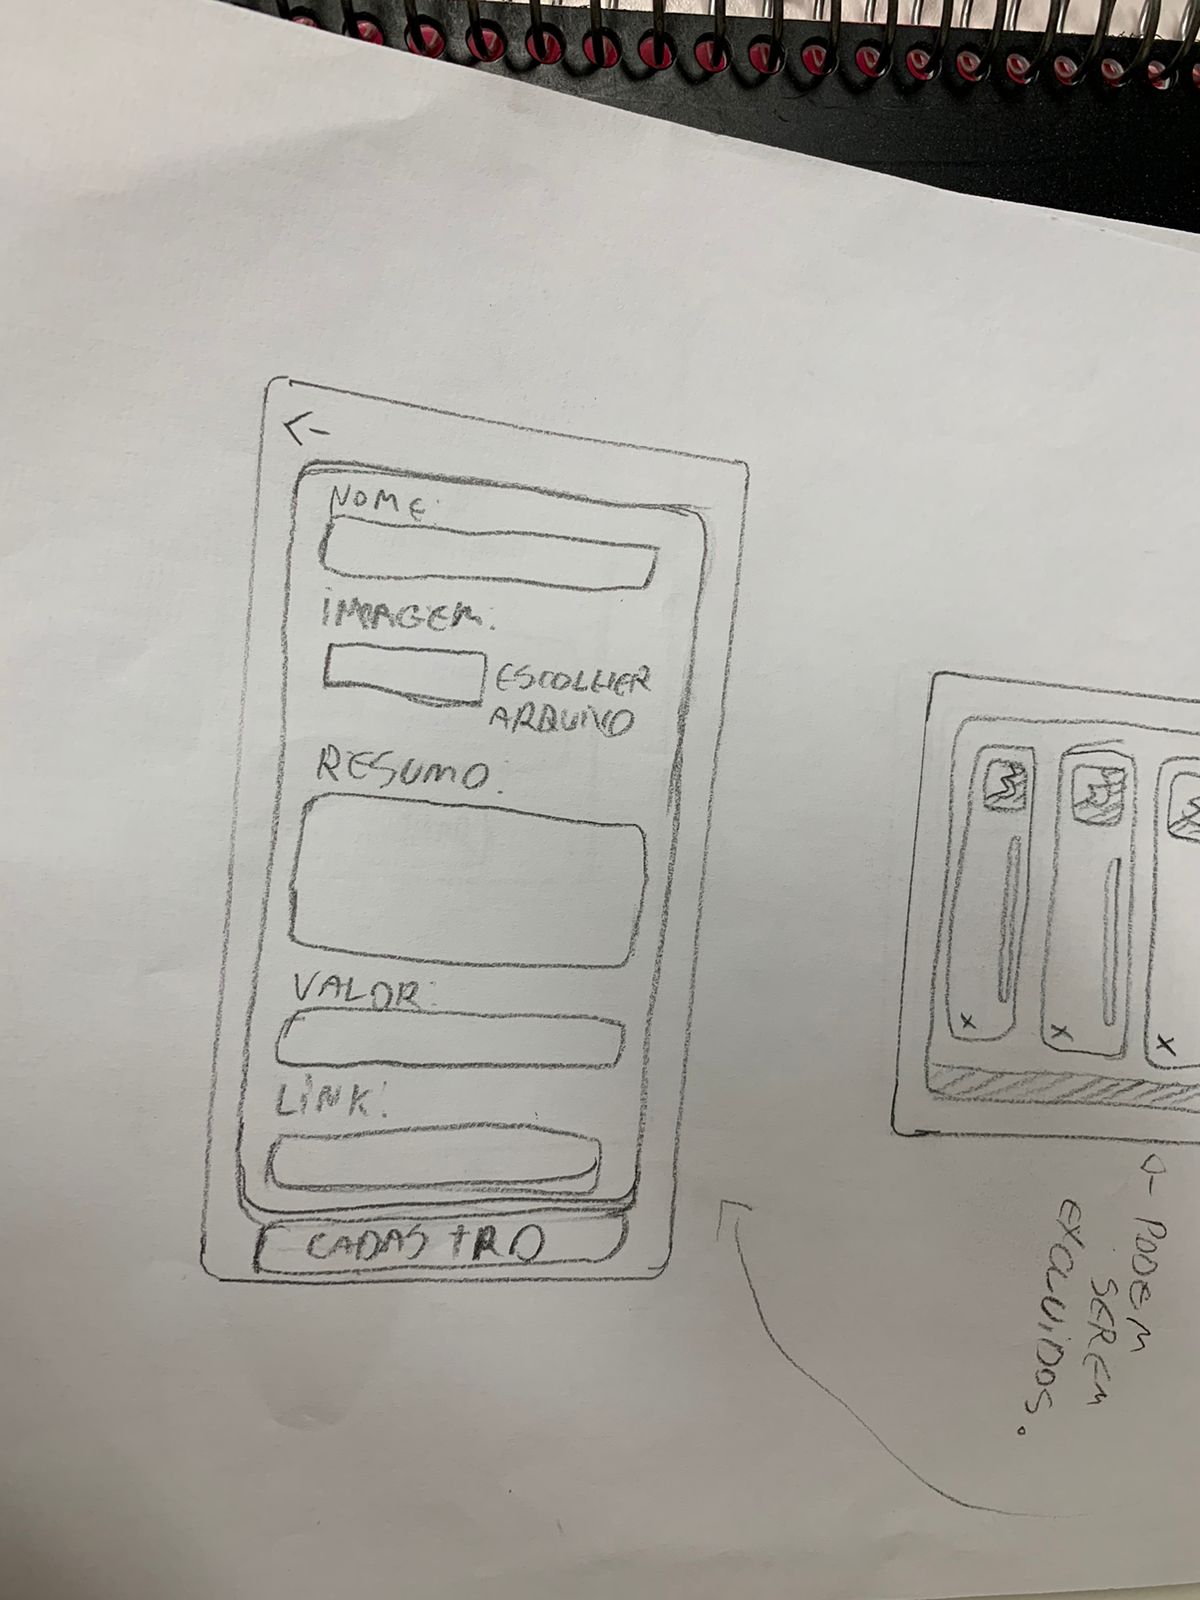 ←
NOME:
IMAGEM:
ESCOLHER
ARQUIVO
RESUMO:
VALOR:
LINK:
CADASTRO
X
X
X
PODEM
SEREM
EXCLUIDOS.